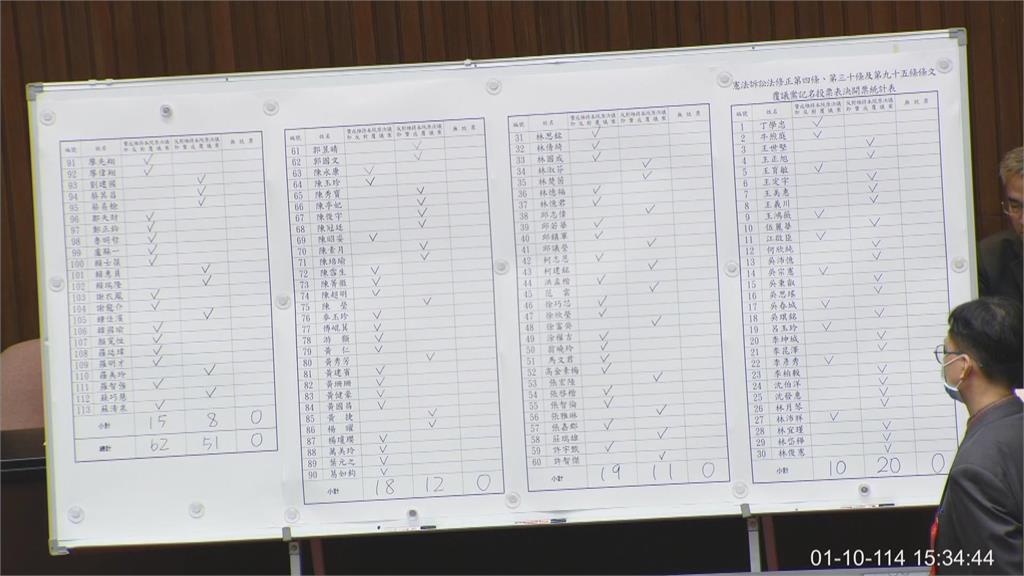 憲法訴訟法修正第四條、第三十條及第九十五條條文
覆議案記名投票表決開票統計表
編號 姓名 贊成維持本院原決議即反對覆議案 反對維持本院原決議即贊成覆議案 無效票
1 丁學忠 ✓
2 牛煦庭 ✓
3 王世堅 ✓
4 王正旭 ✓
5 王育敏 ✓
6 王定宇 ✓
7 王美惠 ✓
8 王義川 ✓
9 王鴻薇 ✓
10 伍麗華 ✓
11 江啟臣 ✓
12 何欣純 ✓
13 吳沛憶 ✓
14 吳宗憲 ✓
15 吳秉叡 ✓
16 吳思瑤 ✓
17 吳春城 ✓
18 吳琪銘 ✓
19 呂玉玲 ✓
20 李坤城 ✓
21 李昆澤 ✓
22 李彥秀 ✓
23 李柏毅 ✓
24 沈伯洋 ✓
25 沈發惠 ✓
26 林月琴 ✓
27 林沛祥 ✓
28 林宜瑾 ✓
29 林岱樺 ✓
30 林俊憲 ✓
小計 10 20 0
編號 姓名 贊成維持本院原決議即反對覆議案 反對維持本院原決議即贊成覆議案 無效票
31 林思銘 ✓
32 林倩綺 ✓
33 林國成 ✓
34 林淑芬 ✓
35 林楚茵 ✓
36 林德福 ✓
37 林憶君 ✓
38 邱志偉 ✓
39 邱若華 ✓
40 邱鎮軍 ✓
41 邱議瑩 ✓
42 柯志恩 ✓
43 柯建銘 ✓
44 洪孟楷 ✓
45 范雲 ✓
46 徐巧芯 ✓
47 徐欣瑩 ✓
48 徐富癸 ✓
49 涂權吉 ✓
50 翁曉玲 ✓
51 馬文君 ✓
52 高金素梅 ✓
53 張宏陸 ✓
54 張啓楷 ✓
55 張智倫 ✓
56 張雅琳 ✓
57 張嘉郡 ✓
58 莊瑞雄 ✓
59 許宇甄 ✓
60 許智傑 ✓
小計 19 11 0
編號 姓名 贊成維持本院原決議即反對覆議案 反對維持本院原決議即贊成覆議案 無效票
61 郭昱晴 ✓
62 郭國文 ✓
63 陳永康 ✓
64 陳玉珍 ✓
65 陳秀寳 ✓
66 陳亭妃 ✓
67 陳俊宇 ✓
68 陳冠廷 ✓
69 陳昭姿 ✓
70 陳素月 ✓
71 陳培瑜 ✓
72 陳雪生 ✓
73 陳菁徽 ✓
74 陳超明 ✓
75 陳瑩 ✓
76 麥玉珍 ✓
77 傅崐萁 ✓
78 游顥 ✓
79 黃仁 ✓
80 黃秀芳 ✓
81 黃建賓 ✓
82 黃珊珊 ✓
83 黃健豪 ✓
84 黃國昌 ✓
85 黃捷 ✓
86 楊曜 ✓
87 楊瓊瓔 ✓
88 萬美玲 ✓
89 葉元之 ✓
90 葛如鈞 ✓
小計 18 12 0
編號 姓名 贊成維持本院原決議即反對覆議案 反對維持本院原決議即贊成覆議案 無效票
91 廖先翔 ✓
92 廖偉翔 ✓
93 劉建國 ✓
94 蔡其昌 ✓
95 蔡易餘 ✓
96 鄭天財 ✓
97 鄭正鈐 ✓
98 魯明哲 ✓
99 盧縣一 ✓
100 賴士葆 ✓
101 賴惠員 ✓
102 賴瑞隆 ✓
103 謝衣鳯 ✓
104 謝龍介 ✓
105 鍾佳濱 ✓
106 韓國瑜 ✓
107 顏寬恒 ✓
108 羅廷瑋 ✓
109 羅明才 ✓
110 羅美玲 ✓
111 羅智強 ✓
112 蘇巧慧 ✓
113 蘇清泉 ✓
小計 15 8 0
總計 62 51 0
01-10-114 15:34:44